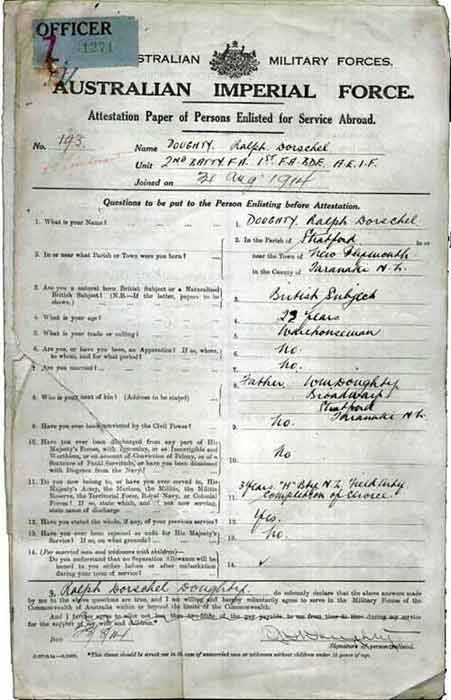 OFFICER
1271
AUSTRALIAN MILITARY FORCES.
AUSTRALIAN IMPERIAL FORCE.
Attestation Paper of Persons Enlisted for Service Abroad.
No. 193. Name DOUGHTY Ralph Dorschel
Unit 2ND BATTY F.A. 1ST F.A. BDE. A.E.I.F.
Joined on 31 Aug 1914
Questions to be put to the Person Enlisting before Attestation.
1. What is your Name? 1. DOUGHTY Ralph Dorschel
2. In or near what Parish or Town were you born? 2. In the Parish of Stratford in or
near the Town of New Plymouth
in the County of Taranaki N.Z.
3. Are you a natural born British Subject or a Naturalised
British Subject? (N.B.—If the latter, papers to be
shown.) 3. British Subject
4. What is your age? 4. 23 years
5. What is your trade or calling? 5. Warehouseman
6. Are you, or have you been, an Apprentice? If so, where,
to whom, and for what period? 6. No.
7. Are you married? 7. No.
8. Who is your next of kin? (Address to be stated) 8. Father. Wm Doughty
Broadway
Stratford
Taranaki N.Z.
9. Have you ever been convicted by the Civil Power? 9. No.
10. Have you ever been discharged from any part of His
Majesty's Forces, with Ignominy, or as Incorrigible and
Worthless, or on account of Conviction of Felony, or of a
Sentence of Penal Servitude, or have you been dismissed
with Disgrace from the Navy? 10. No
11. Do you now belong to, or have you ever served in, His
Majesty's Army, the Marines, the Militia, the Militia
Reserve, the Territorial Force, Royal Navy, or Colonial
Forces? If so, state which, and if not now serving,
state cause of discharge 11. 3 years "H" Bty N.Z. Field Arty
Completion of Service
12. Have you stated the whole, if any, of your previous service? 12. Yes.
13. Have you ever been rejected as unfit for His Majesty's
Service? If so, on what grounds? 13. No.
14. (For married men and widowers with children—)
Do you understand that no Separation Allowance will be
issued to you either before or after embarkation
during your term of service? 14.
I, Ralph Dorschel Doughty, do solemnly declare that the above answers made
by me to the above questions are true, and I am willing and hereby voluntarily agree to serve in the Military Forces of the
Commonwealth of Australia within or beyond the limits of the Commonwealth.
And I further agree to allot not less than of the pay payable to me from time to time during my service
for the support of my wife and children.
Date
Signature of person enlisted.
*This clause should be struck out in case of unmarried men or widowers without children under 18 years of age.